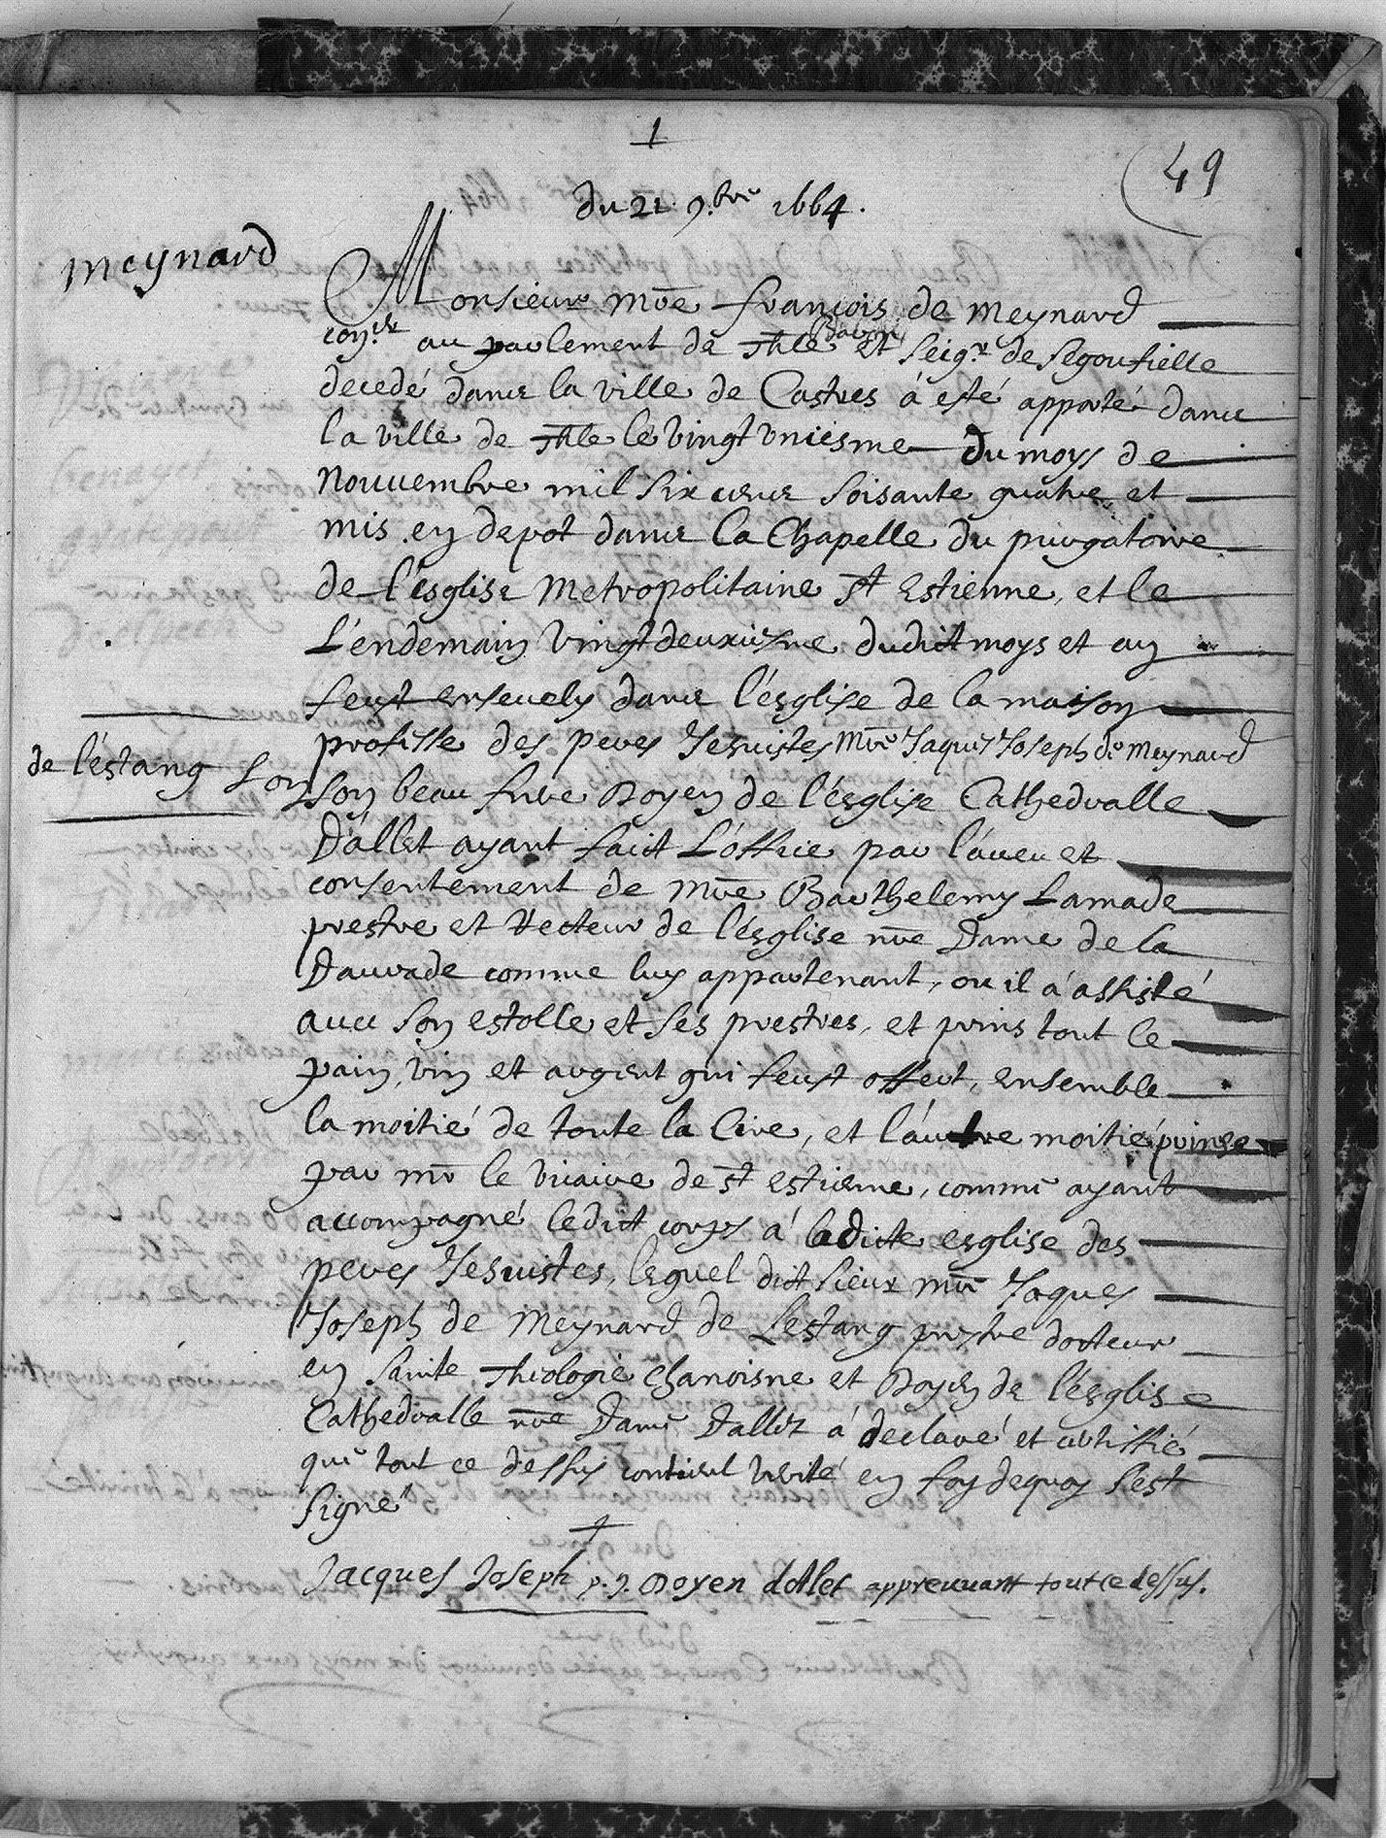 1
49
du 21 9.bre 1664.
Meynard
Monsieur Mre françois de Meynard
con.er au parlement de Thle Baron et seig.r de Segoufielle
decedé dans la ville de Castres á esté apporté dans
la ville de Thle le vingt uniesme du moys de
Nouuembre mil six cens soisante quatre et
mis en depot dans la Chapelle du purgatoire
de l'ésglise Metropolitaine St Estienne, et le
L'endemain vingt deuxiesme dudict moys et an
feust enseuely dans l'ésglise de la maison
professe des peres Jesuistes Mre Jaques Joseph de Meynard
de l'éstang son
son beau frere Doyen de l'ésglise Cathedralle
D'állet ayant faict L'óffice par l'áueu et
consentement de Mre Barthelemy Lamade
prestre et Recteur de l'ésglise nre Dame de la
Daurade comme luy appartenant, ou il á assisté
auec son estolle et ses prestres, et prins tout le
pain, vin et argent qui feust offert, ensemble
la moitié de toute la Cire, et l'áutre moitié prinse
par mr le vicaire de St Estienne, comme ayant
accompagné ledict corps á ladicte esglise des
peres Jesuistes, lequel dict sieur Mre Jaques
Joseph de Meynard de Lestang prestre docteur
en sainte Theologie chanoisne et Doyen de l'ésglise
Cathedralle nre Dame Dallet á declaré et certiffié
que tout ce dessus contient verité en foy dequoy s'est
signé
Jacques Joseph p. J. Doyen dAlet appreuuant tout ce dessus.